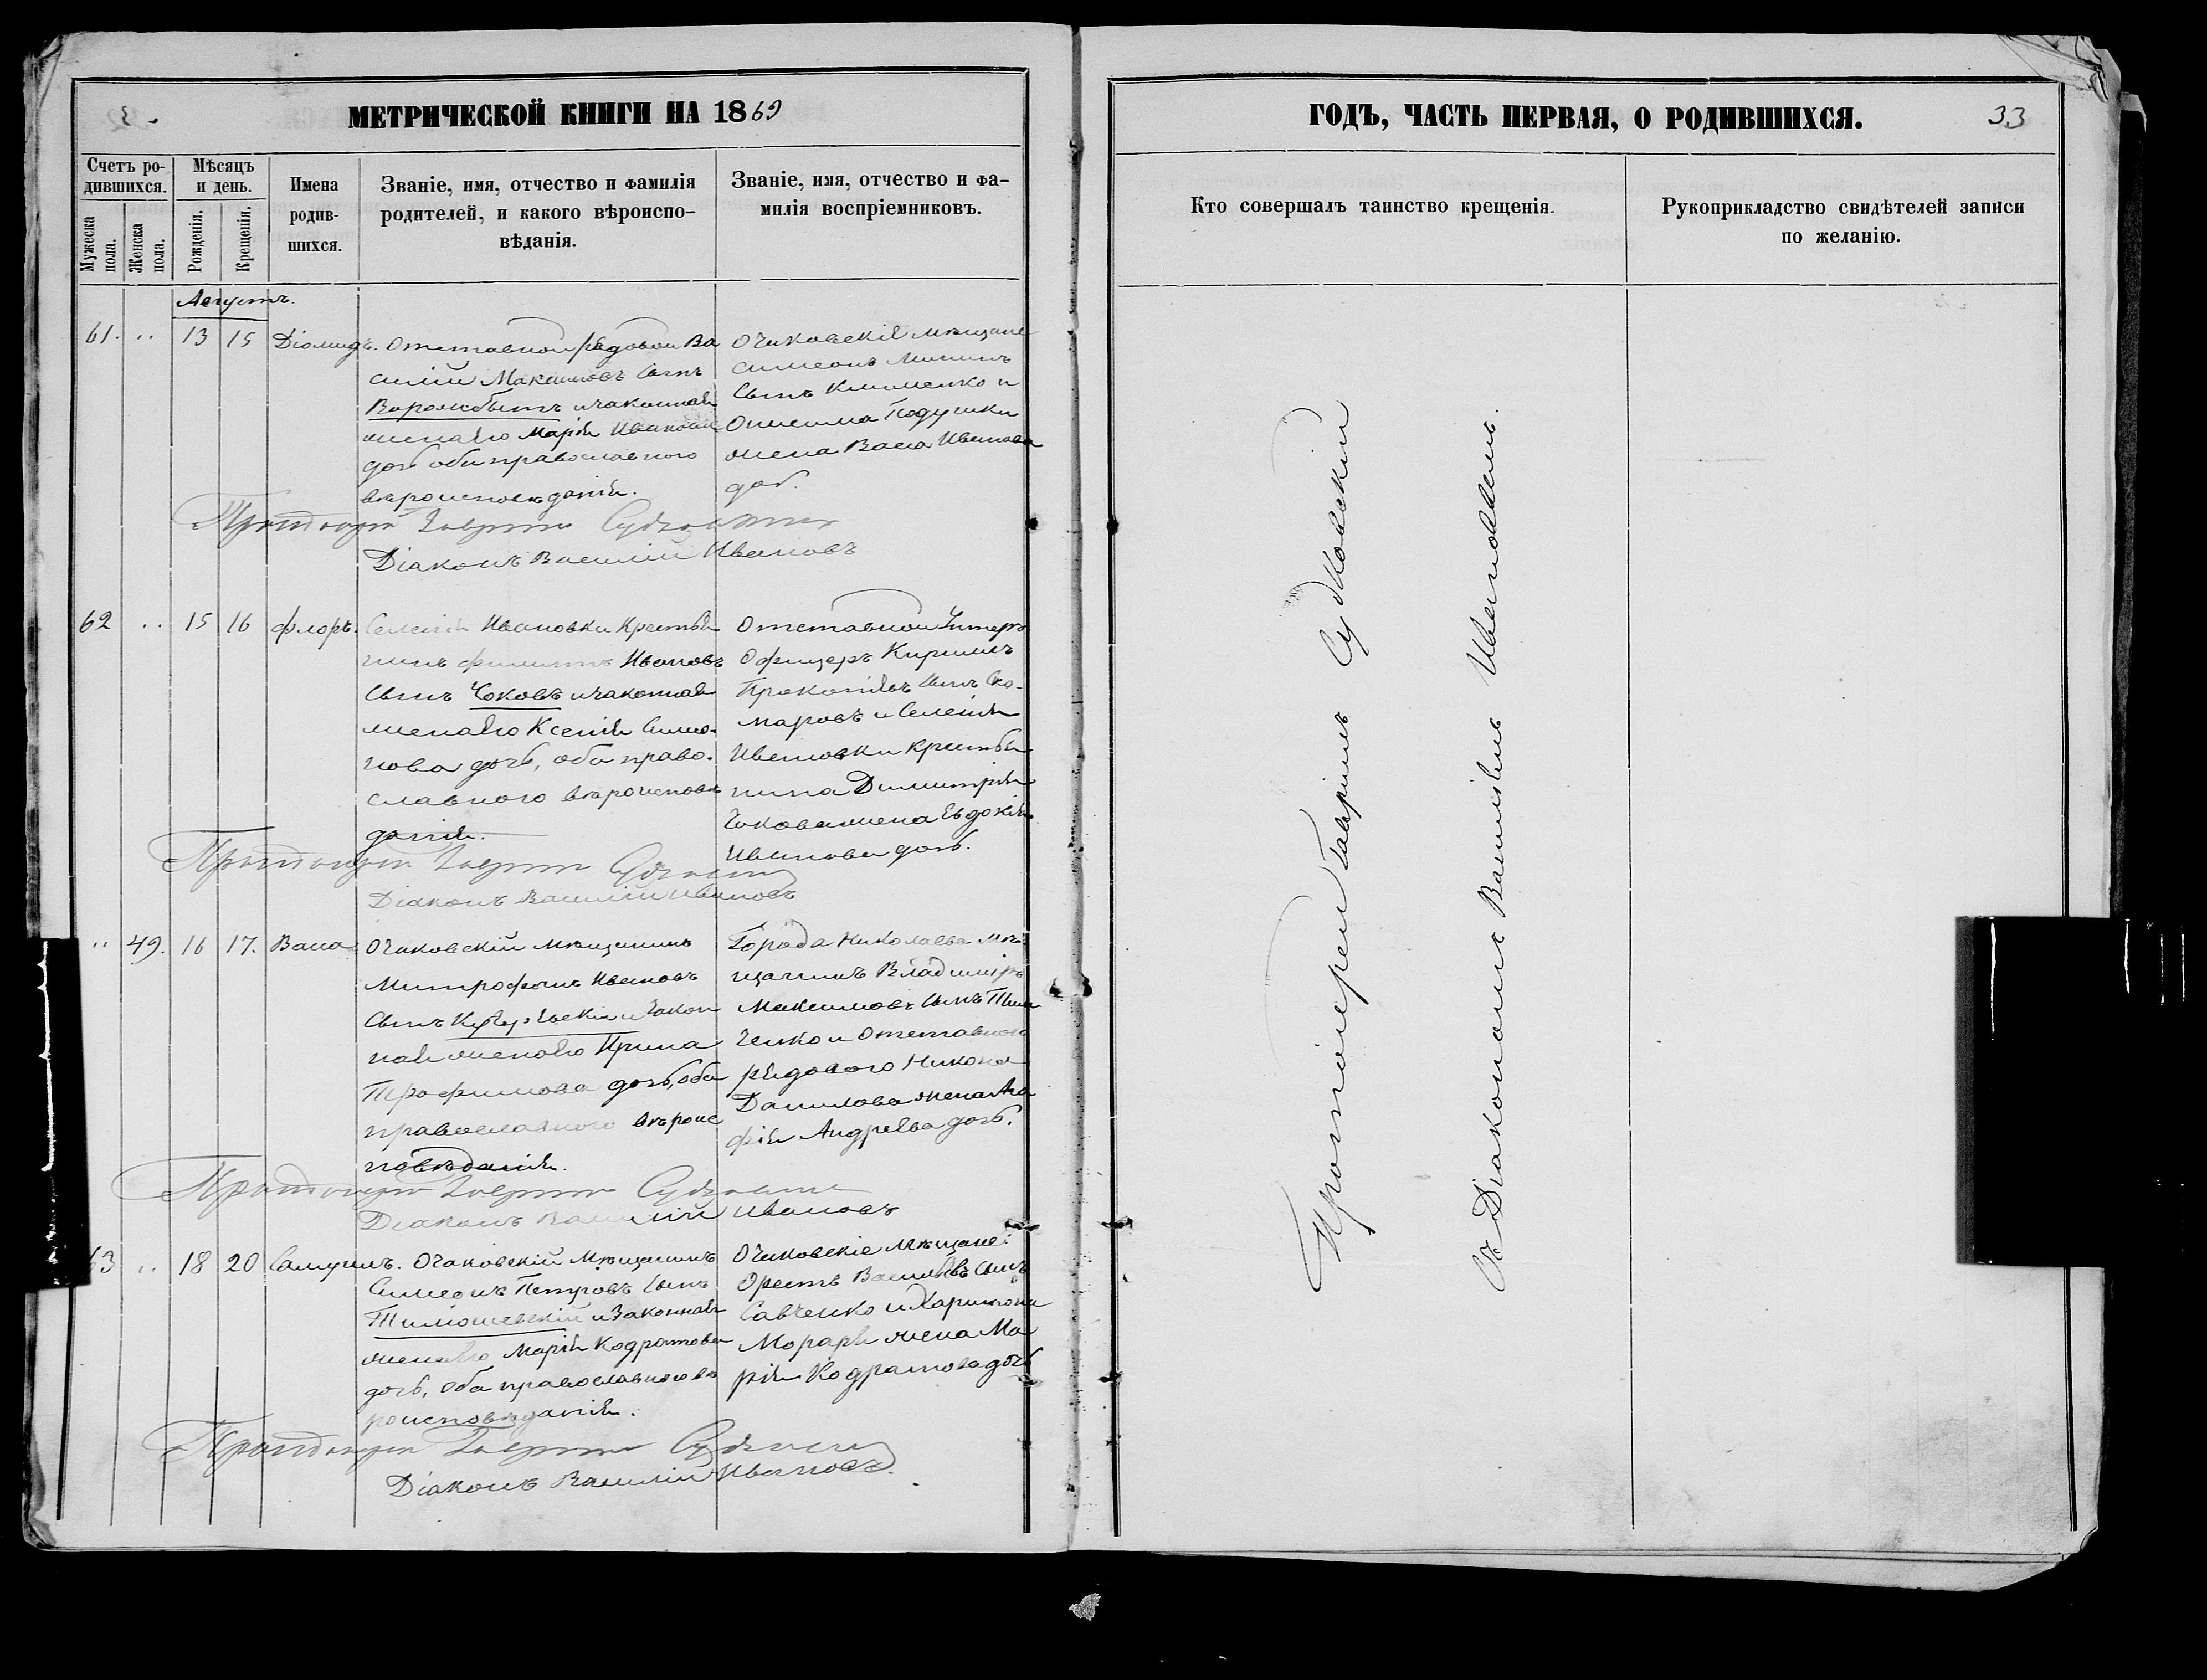 МЕТРИЧЕСКОЙ КНИГИ НА 1869
Счетъ родившихся.
Мужеска пола.
Женска пола.
Мѣсяцъ и день.
Рожденія.
Крещенія.
Имена родившихся.
Званіе, имя, отчество и фамилія
родителей, и какого вѣроиспо-
вѣданія.
Званіе, имя, отчество и фа-
милія воспріемниковъ.
Августъ.
61. .. 13 15 Діомидъ.
Отставной рядовой Ва
силій Максимовъ сынъ
Ворожбитъ и законная
жена его Марія Иванова
дочь оба православного
вѣроисповѣданія.
Очаковскіе мѣщане
Симеонъ Мининъ
сынъ Клименко и
Онисима Подушки
жена Васса Иванова
дочь.
Протоіерей Гавріилъ Судковскій
Діаконъ Василій Ивановъ
62 .. 15 16 Флоръ.
Селенія Ивановки крестья
нинъ Филиппъ Ивановъ
сынъ Чоковъ и законная
жена его Ксенія Симо-
нова дочь, оба право-
славного вѣроисповѣ
данія.
Отставной Унтеръ
Офицеръ Кириллъ
Прокопіевъ сынъ Ско-
маровъ и Селенія
Ивановки крестья
нина Димитрія
Чокова жена Евдокія
Иванова дочь.
Протоіерей Гавріилъ Судковскій
Діаконъ Василій Ивановъ
.. 49. 16 17. Васса
Очаковскій мѣщанинъ
Митрофанъ Ивановъ
сынъ и закон
ная жена его Ирина
Трофимова дочь, оба
православного вѣроис
повѣданія.
Города Николаева мѣ-
щанинъ Владиміръ
Максимовъ сынъ
ченко и отставного
рядового Никона
Данилова жена Ага
фія Андреева дочь.
Протоіерей Гавріилъ Судковскій
Діаконъ Василій Ивановъ
63 .. 18 20 Самуилъ.
Очаковскій мѣщанинъ
Симеонъ Петровъ сынъ
Тимошевскій и законная
жена его Марія Кодратова
дочь, оба православного вѣ
роисповѣданія.
Очаковскіе мѣщане:
Орестъ Васильевъ сынъ
Савченко и Харитона
Мораря жена Ма
рія Кодратова дочь
Протоіерей Гавріилъ Судковскій
Діаконъ Василій Ивановъ.
ГОДЪ, ЧАСТЬ ПЕРВАЯ, О РОДИВШИХСЯ.
33
Кто совершалъ таинство крещенія.
Рукоприкладство свидѣтелей записи
по желанію.
Протоіерей Гавріилъ Судковскій
съ Діакономъ Василіемъ Ивановымъ.